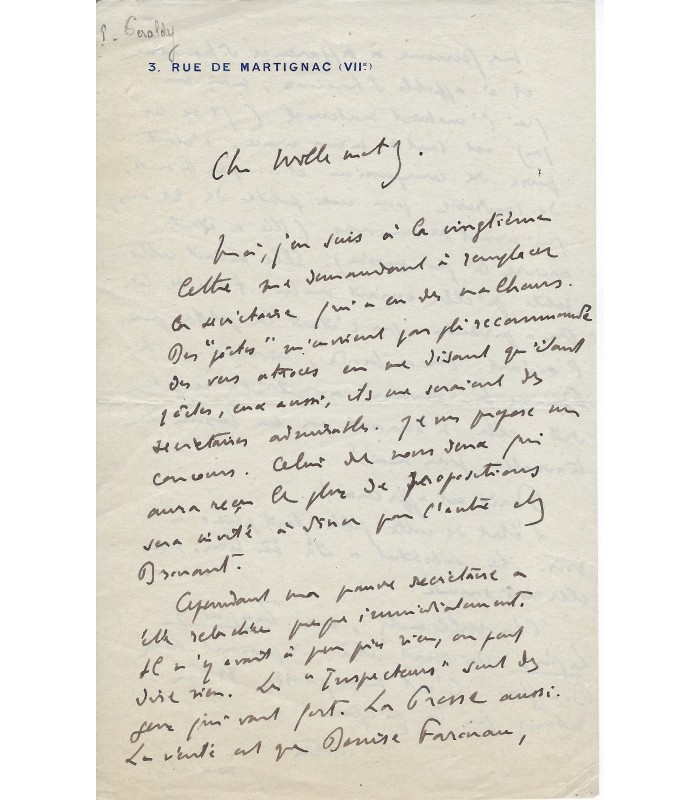 P. Geraldy
3. RUE DE MARTIGNAC (VIIe)
Cher
Moi, j'en suis à la vingtième
lettre me demandant à remplacer
la secrétaire qui a eu des malheurs.
Des "poètes" m'envoient par pli recommandé
des vers atroces en me disant qu'étant
poètes, eux aussi, ils me seraient des
secrétaires admirables. Je vous propose un
concours. Celui de nous deux qui
aura reçu le plus de propositions
sera invité à dîner par l'autre chez
Drouant.
Cependant ma pauvre secrétaire a
été relâchée presque immédiatement.
Il n'y avait à peu près rien, on peut
dire rien. Les "Inspecteurs" sont des
gens qui vont fort. La Presse aussi.
La vérité est que Denise